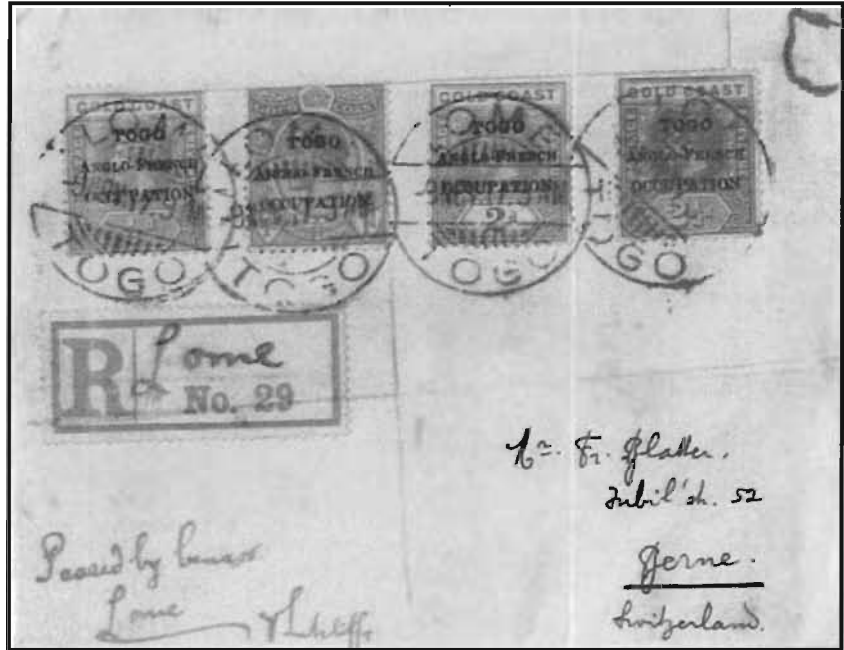 GOLD COAST
TOGO
ANGLO-FRENCH
OCCUPATION
TOGO
ANGLO-FRENCH
OCCUPATION
GOLD COAST
TOGO
ANGLO-FRENCH
OCCUPATION
2d
GOLD COAST
TOGO
ANGLO-FRENCH
OCCUPATION
LOME
TOGO
TOGO
LOME
TOGO
TOGO
R Lome
No. 29
Fr. Blatter.
52
Berne.
Switzerland.
Passed by Censor
Lome